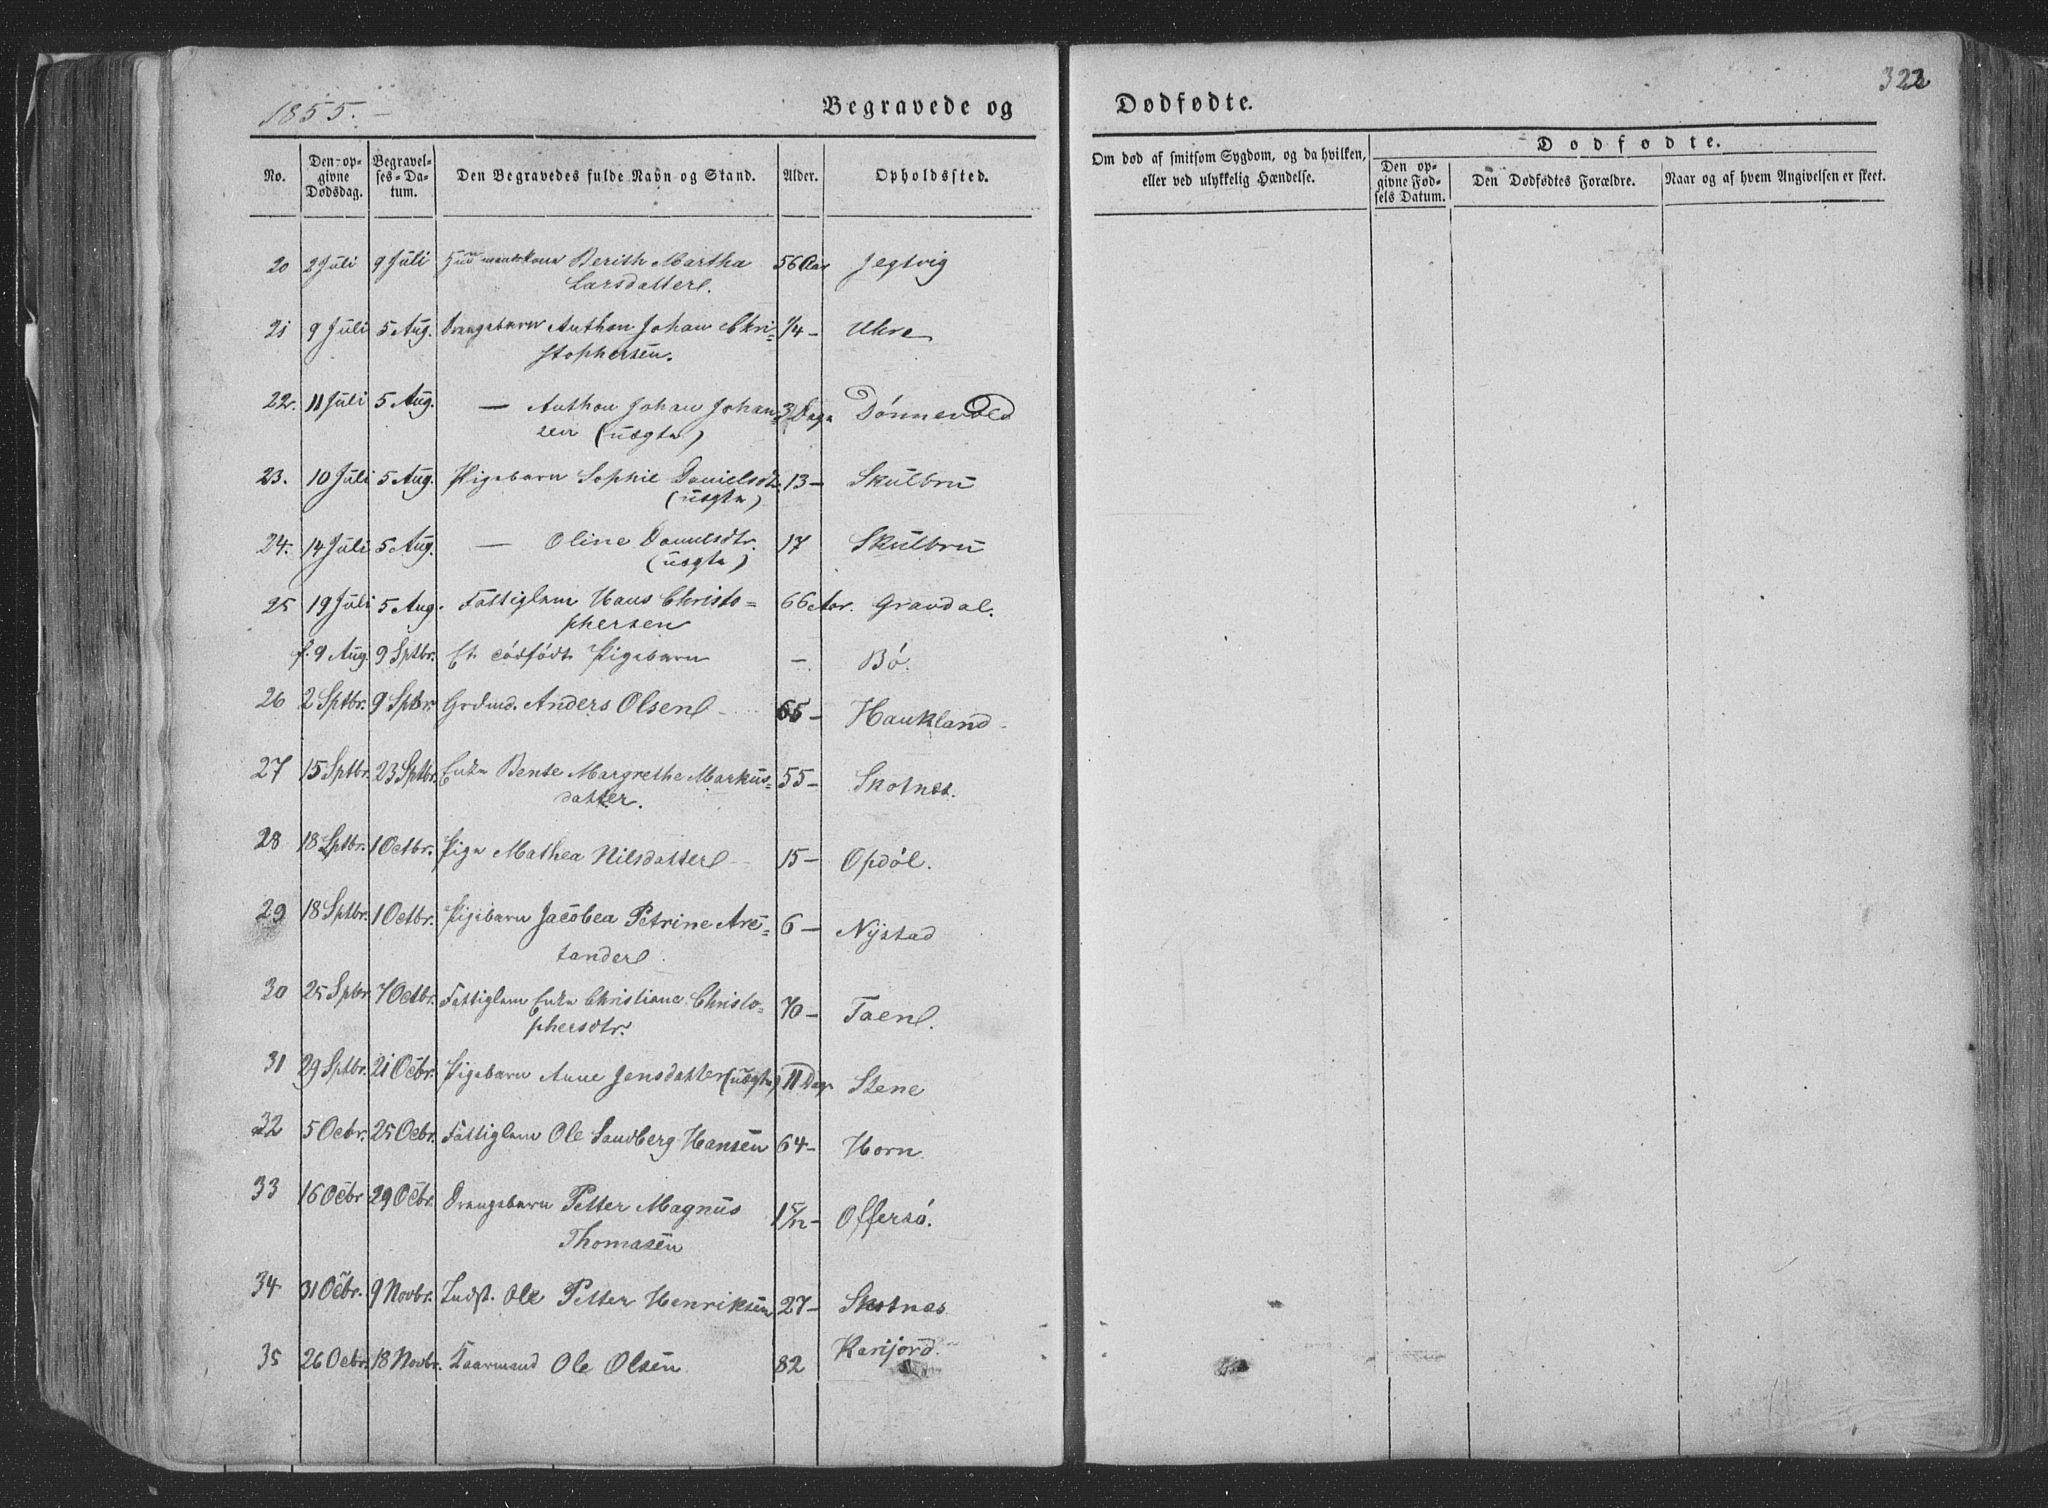 1855.
Begravede og
Dødfødte.
322
No.
Den opgivne Dødsdag.
Begravelses-Datum.
Den Begravedes fulde Navn og Stand.
Alder.
Opholdssted.
Om død af smitsom Sygdom, og da hvilken, eller ved ulykkelig Hændelse.
Dødfødte.
Den opgivne Fødsels Datum.
Den Dødfødtes Forældre.
Naar og af hvem Angivelsen er skeet.
20 2 Juli 9 Juli Berith Martha 56 Aar Jegtvig
Larsdatter.
21 9 Juli 5 Aug. Drengebarn Anthon Johan Chri= 1/4 – Ukre
stophersen.
22. 11 Juli 5 Aug. — Anthon Johan Johan= 3 Dage Dønnevold
sen (uægte)
23. 10 Juli 5 Aug. Pigebarn Sophie Danielsdtr 13 – Skulbru
(uægte)
24. 14 Juli 5 Aug. — Oline Danielsdtr. 17 Skulbru
(uægte)
25 19 Juli 5 Aug. Fattiglem Hans Christo= 66 Aar. Grandal.
phersen
f. 9 Aug. 9 Sptbr. Et dødfødt Pigebarn – Bø.
26 2 Sptbr. 9 Sptbr. Grdmd. Anders Olsen 65 – Haukland
27 15 Sptbr. 23 Sptbr. Enke Bente Margrethe Markus= 55 – Skotnes.
datter.
28 18 Sptbr. 1 Octbr. Pige Mathea Nilsdatter 15 – Opdøl.
29 18 Sptbr. 1 Octbr. Pigebarn Jacobea Petrine Are= 6 – Nystad
tander
30 25 Sptbr 7 Octbr. Fattiglem Enke Christiane Christo= 70 – Taen.
phersdtr.
31 29 Sptbr. 21 Octbr. Pigebarn Anne Jensdatter (uægte) 11 Dage Stene
32 5 Octbr. 25 Octbr. Fattiglem Ole Sandberg Hansen 64 – Horn
33 16 Octbr 29 Octbr. Drengebarn Petter Magnus 1 5/12 – Offersø.
Thomasen
34 31 Octbr. 9 Novbr. Indst. Ole Petter Henriksen 27 – Skotnes
35 26 Octbr. 18 Novbr. Kaarmand Ole Olsen 82 Karijord.